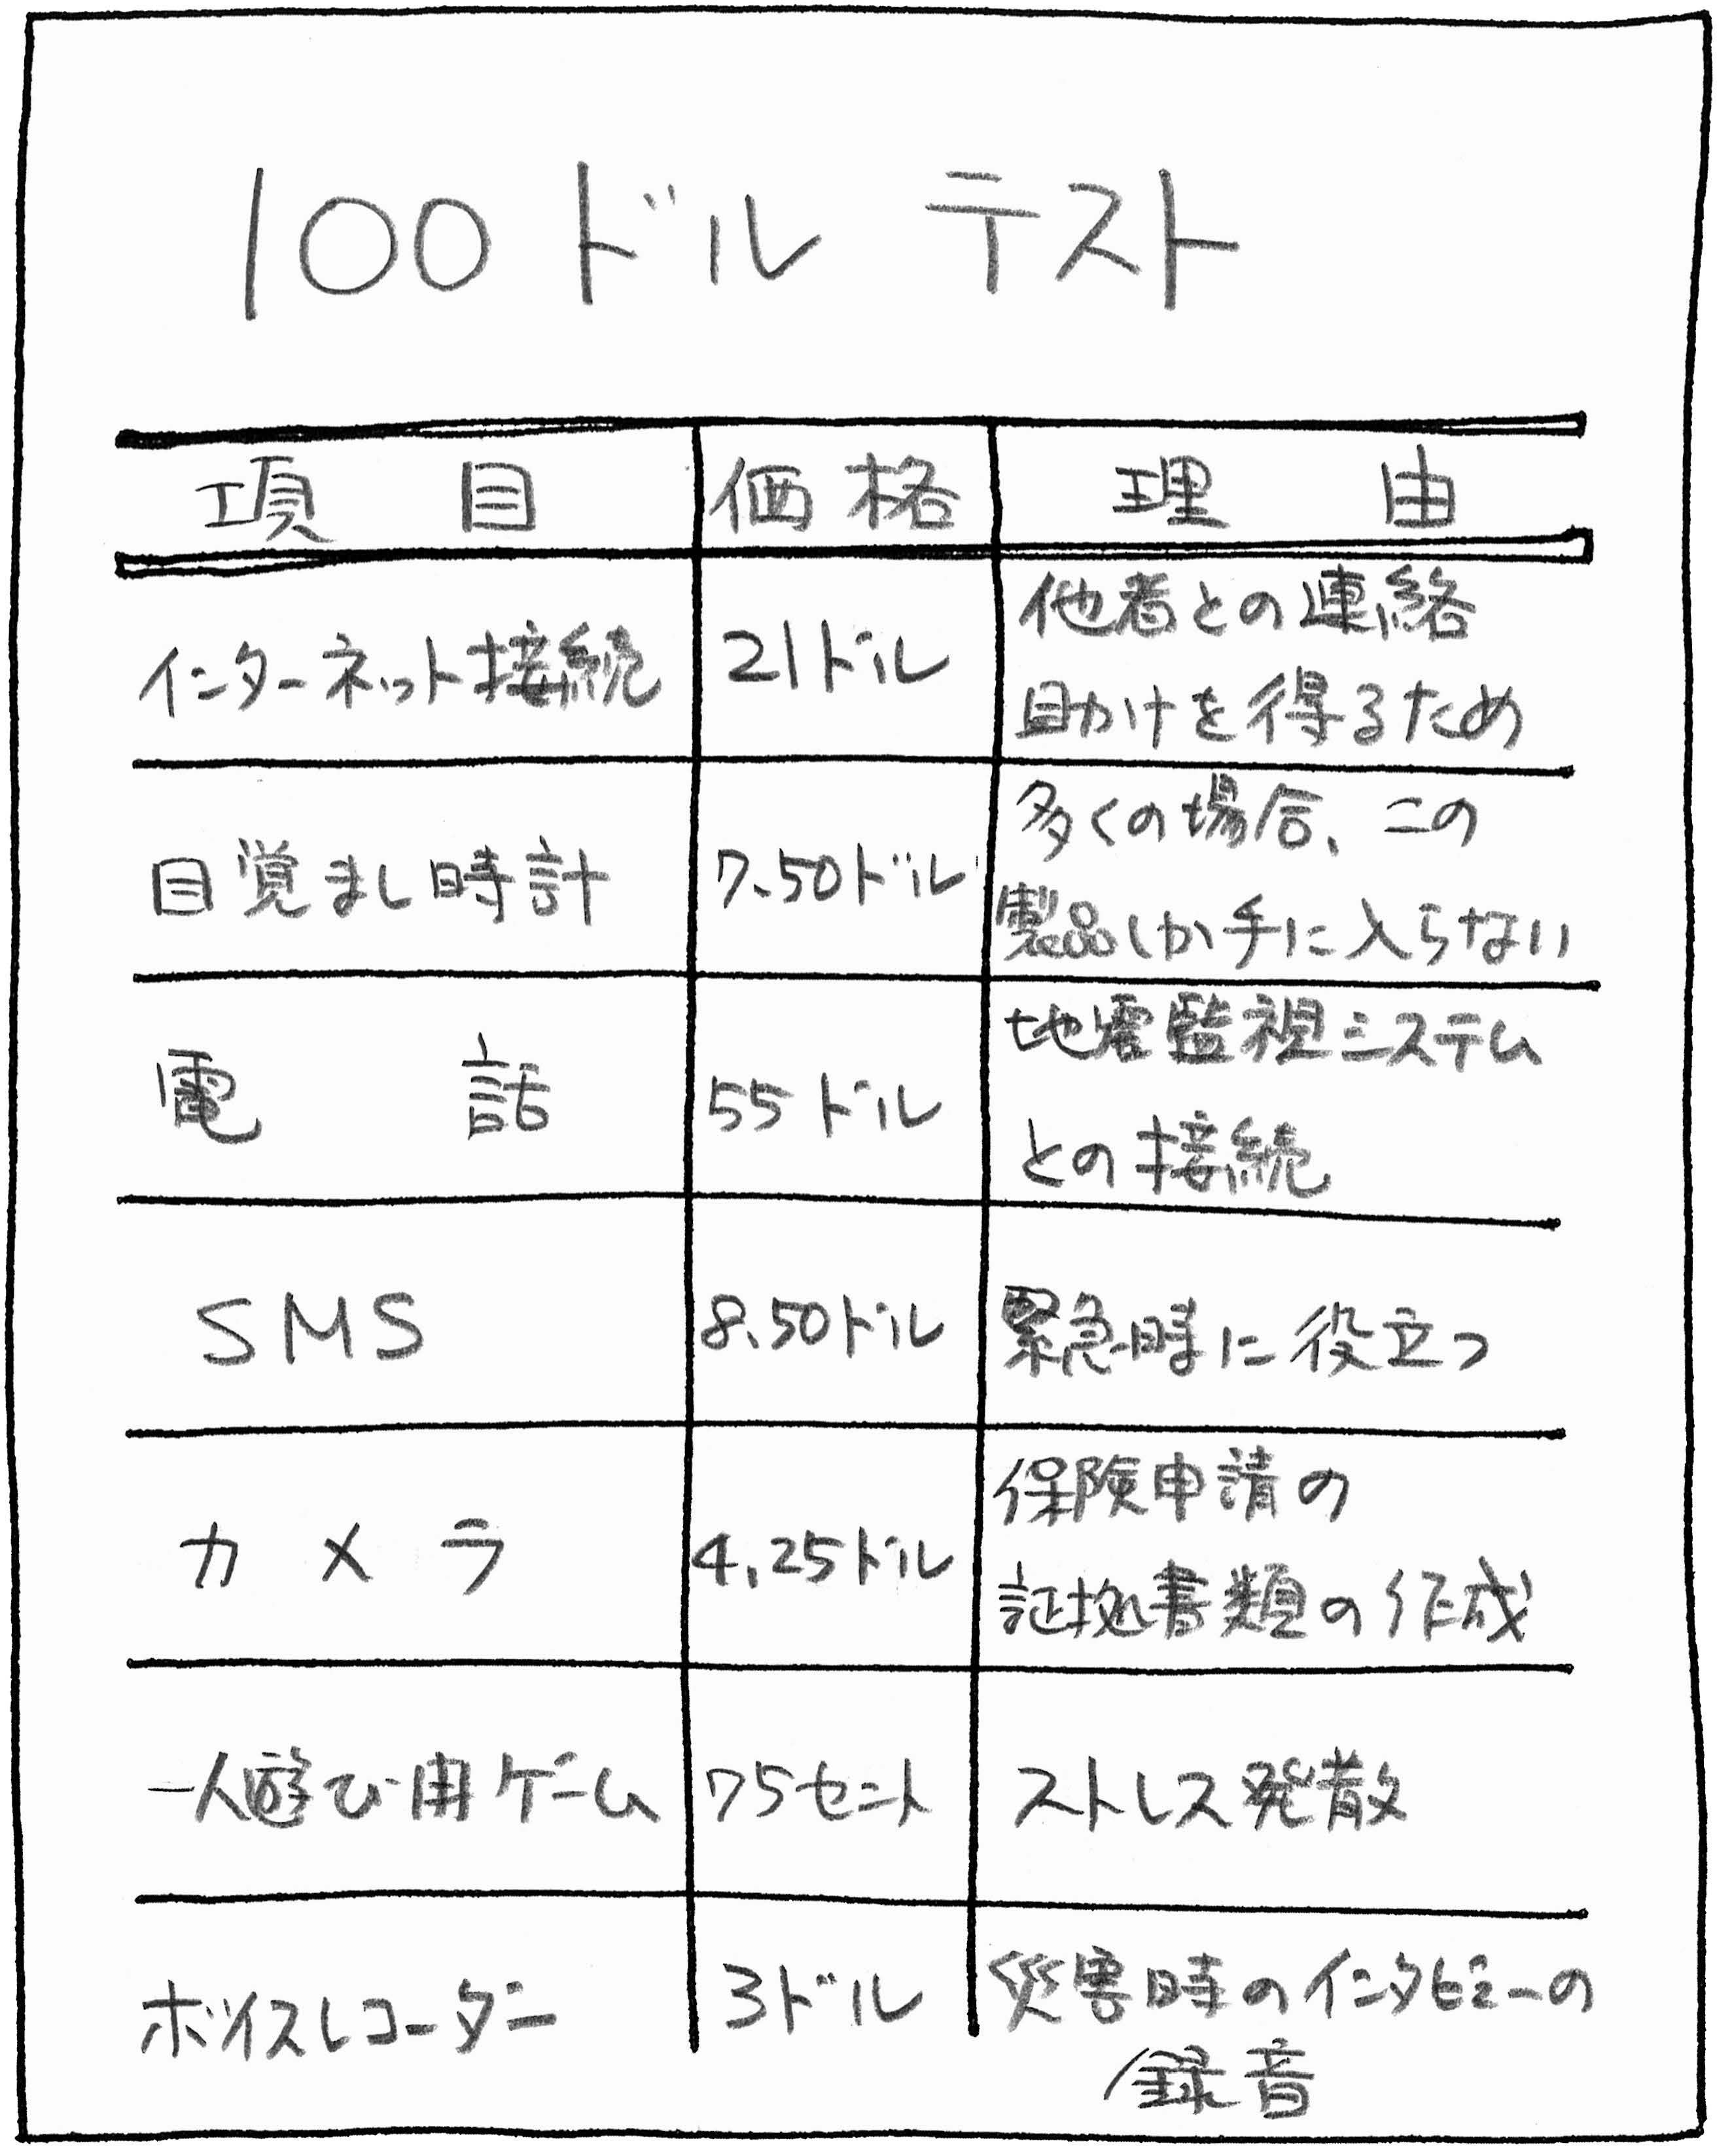 100ドル テスト
項目 価格 理由
インターネット接続 21ドル 他者との連絡
助けを得るため
目覚まし時計 7.50ドル 多くの場合、この
製品しか手に入らない
電話 55ドル 地震監視システム
との接続
SMS 8.50ドル 緊急時に役立つ
カメラ 4.25ドル 保険申請の
証拠書類の作成
一人遊び用ゲーム 75セント ストレス発散
ボイスレコーダー 3ドル 災害時のインタビューの
録音